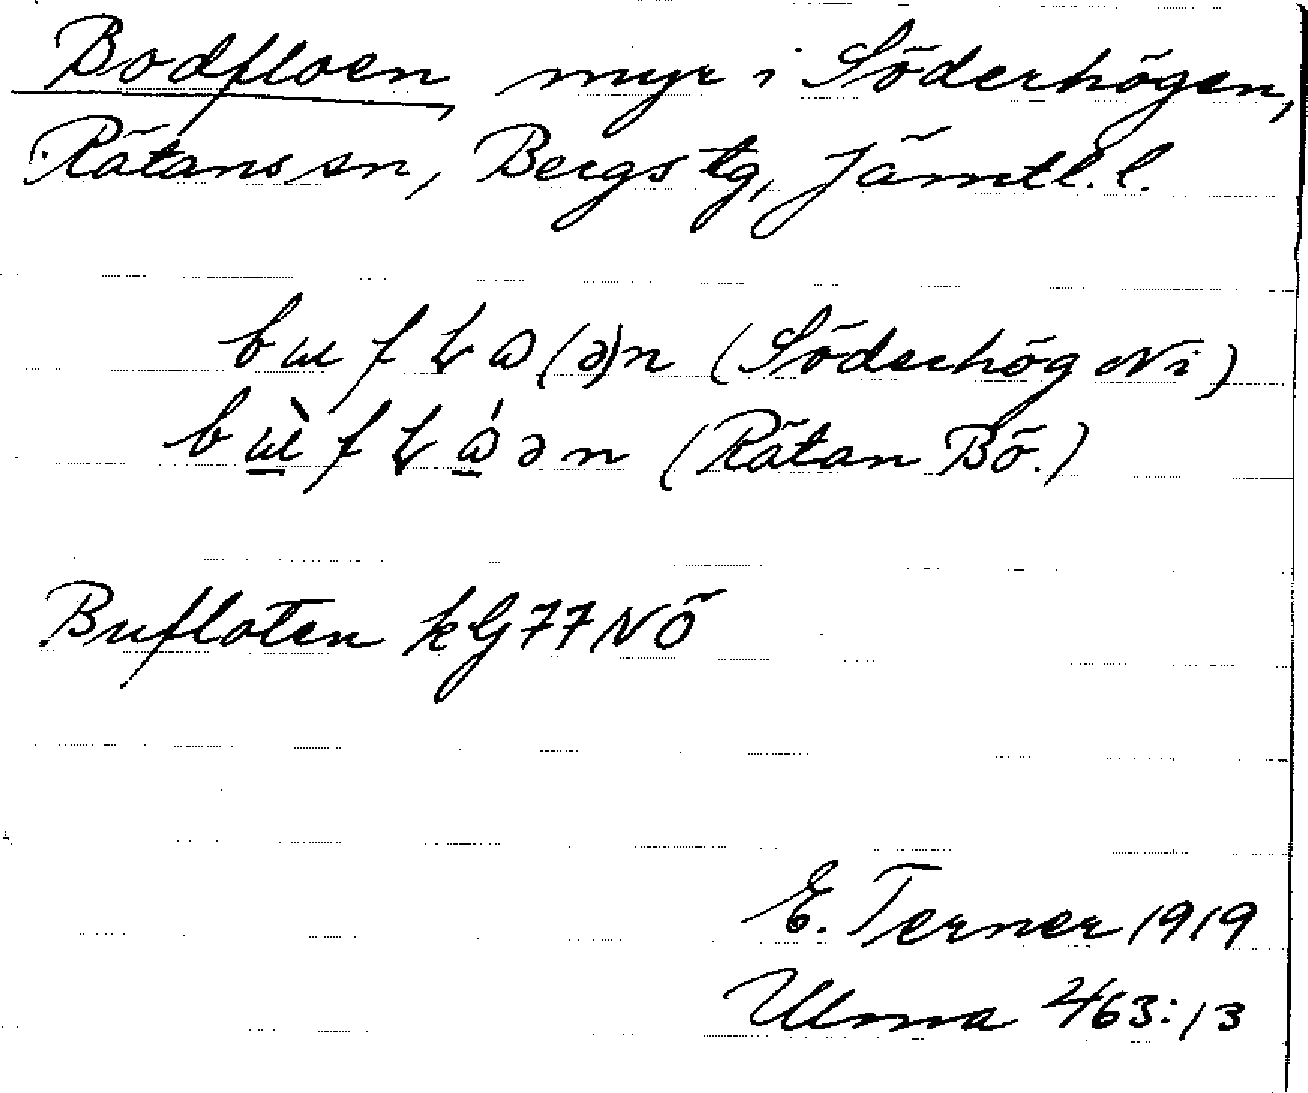 Bodfloen, myr i Söderhögen,
Rätans sn, Bergs tg, Jämtl. l.
(Söderhög Ni)
(Rätan Bö.)
Bufloten kG77NÖ
E. Terner 1919
Ulma 463:13